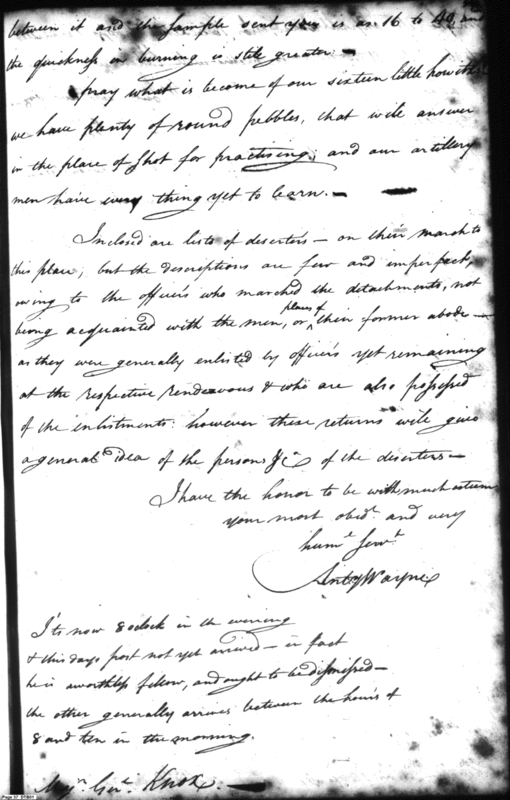 between it and the sample sent you is as 16 to 40, and
the quickness in burning is still greater.—
pray what is become of our sixteen little howitz
we have plenty of round pebbles, that will answer
in the place of shot for practising; and our artillery
men have every thing yet to learn.—
Inclosed are lists of deserters— on their march to
this place; but the descriptions are few and imperfect,
owing to the officers who marched the detachments, not
being acquainted with the men, or places of their former abode—
as they were generally enlisted by officers yet remaining
at the respective Rendezvous & who are also possessed
of the enlistments: however these returns will give
a general idea of the persons &c of the deserters—
I have the honor to be with much esteem
your most obedt. and very
humle Servt.
Anty Wayne
It's now 8 oclock in the evening
& this days post not yet arrived— in fact
he is a worthless fellow, and ought to be dismissed—
the other generally arrives between the hours of
8 and ten in the morning.
Majr. Genl. Knox.—